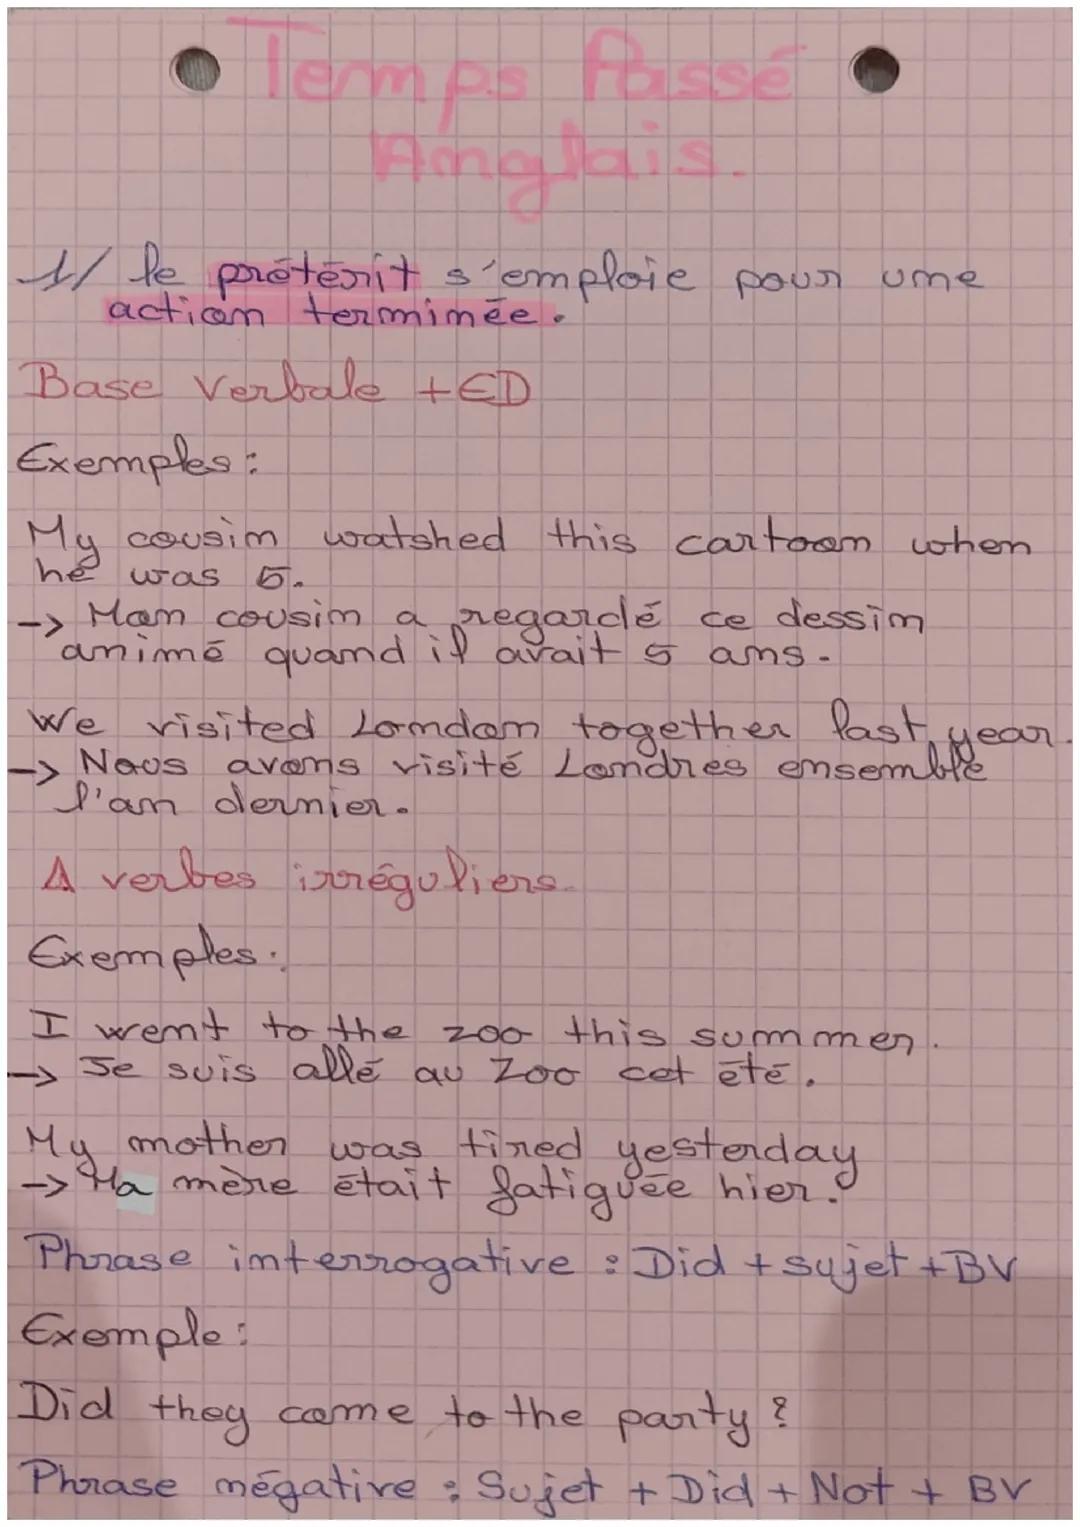 Temps Passé
Anglais.
1/ le prétérit s'emploie pour une
action terminée.
Base Verbale +ED
Exemples :
My cousin watshed this cartoon when
he was 5.
-> Mon cousin a regardé ce dessin
animé quand il avait 5 ans.
We visited London together last year.
-> Nous avons visité Londres ensemble
l'an dernier.
⚠ verbes irréguliers.
Exemples :
I went to the zoo this summer.
-> Je suis allé au Zoo cet été.
My mother was tired yesterday
-> Ma mère était fatiguée hier.
Phrase interrogative : Did + sujet + BV
Exemple :
Did they come to the party ?
Phrase négative : Sujet + Did + Not + BV